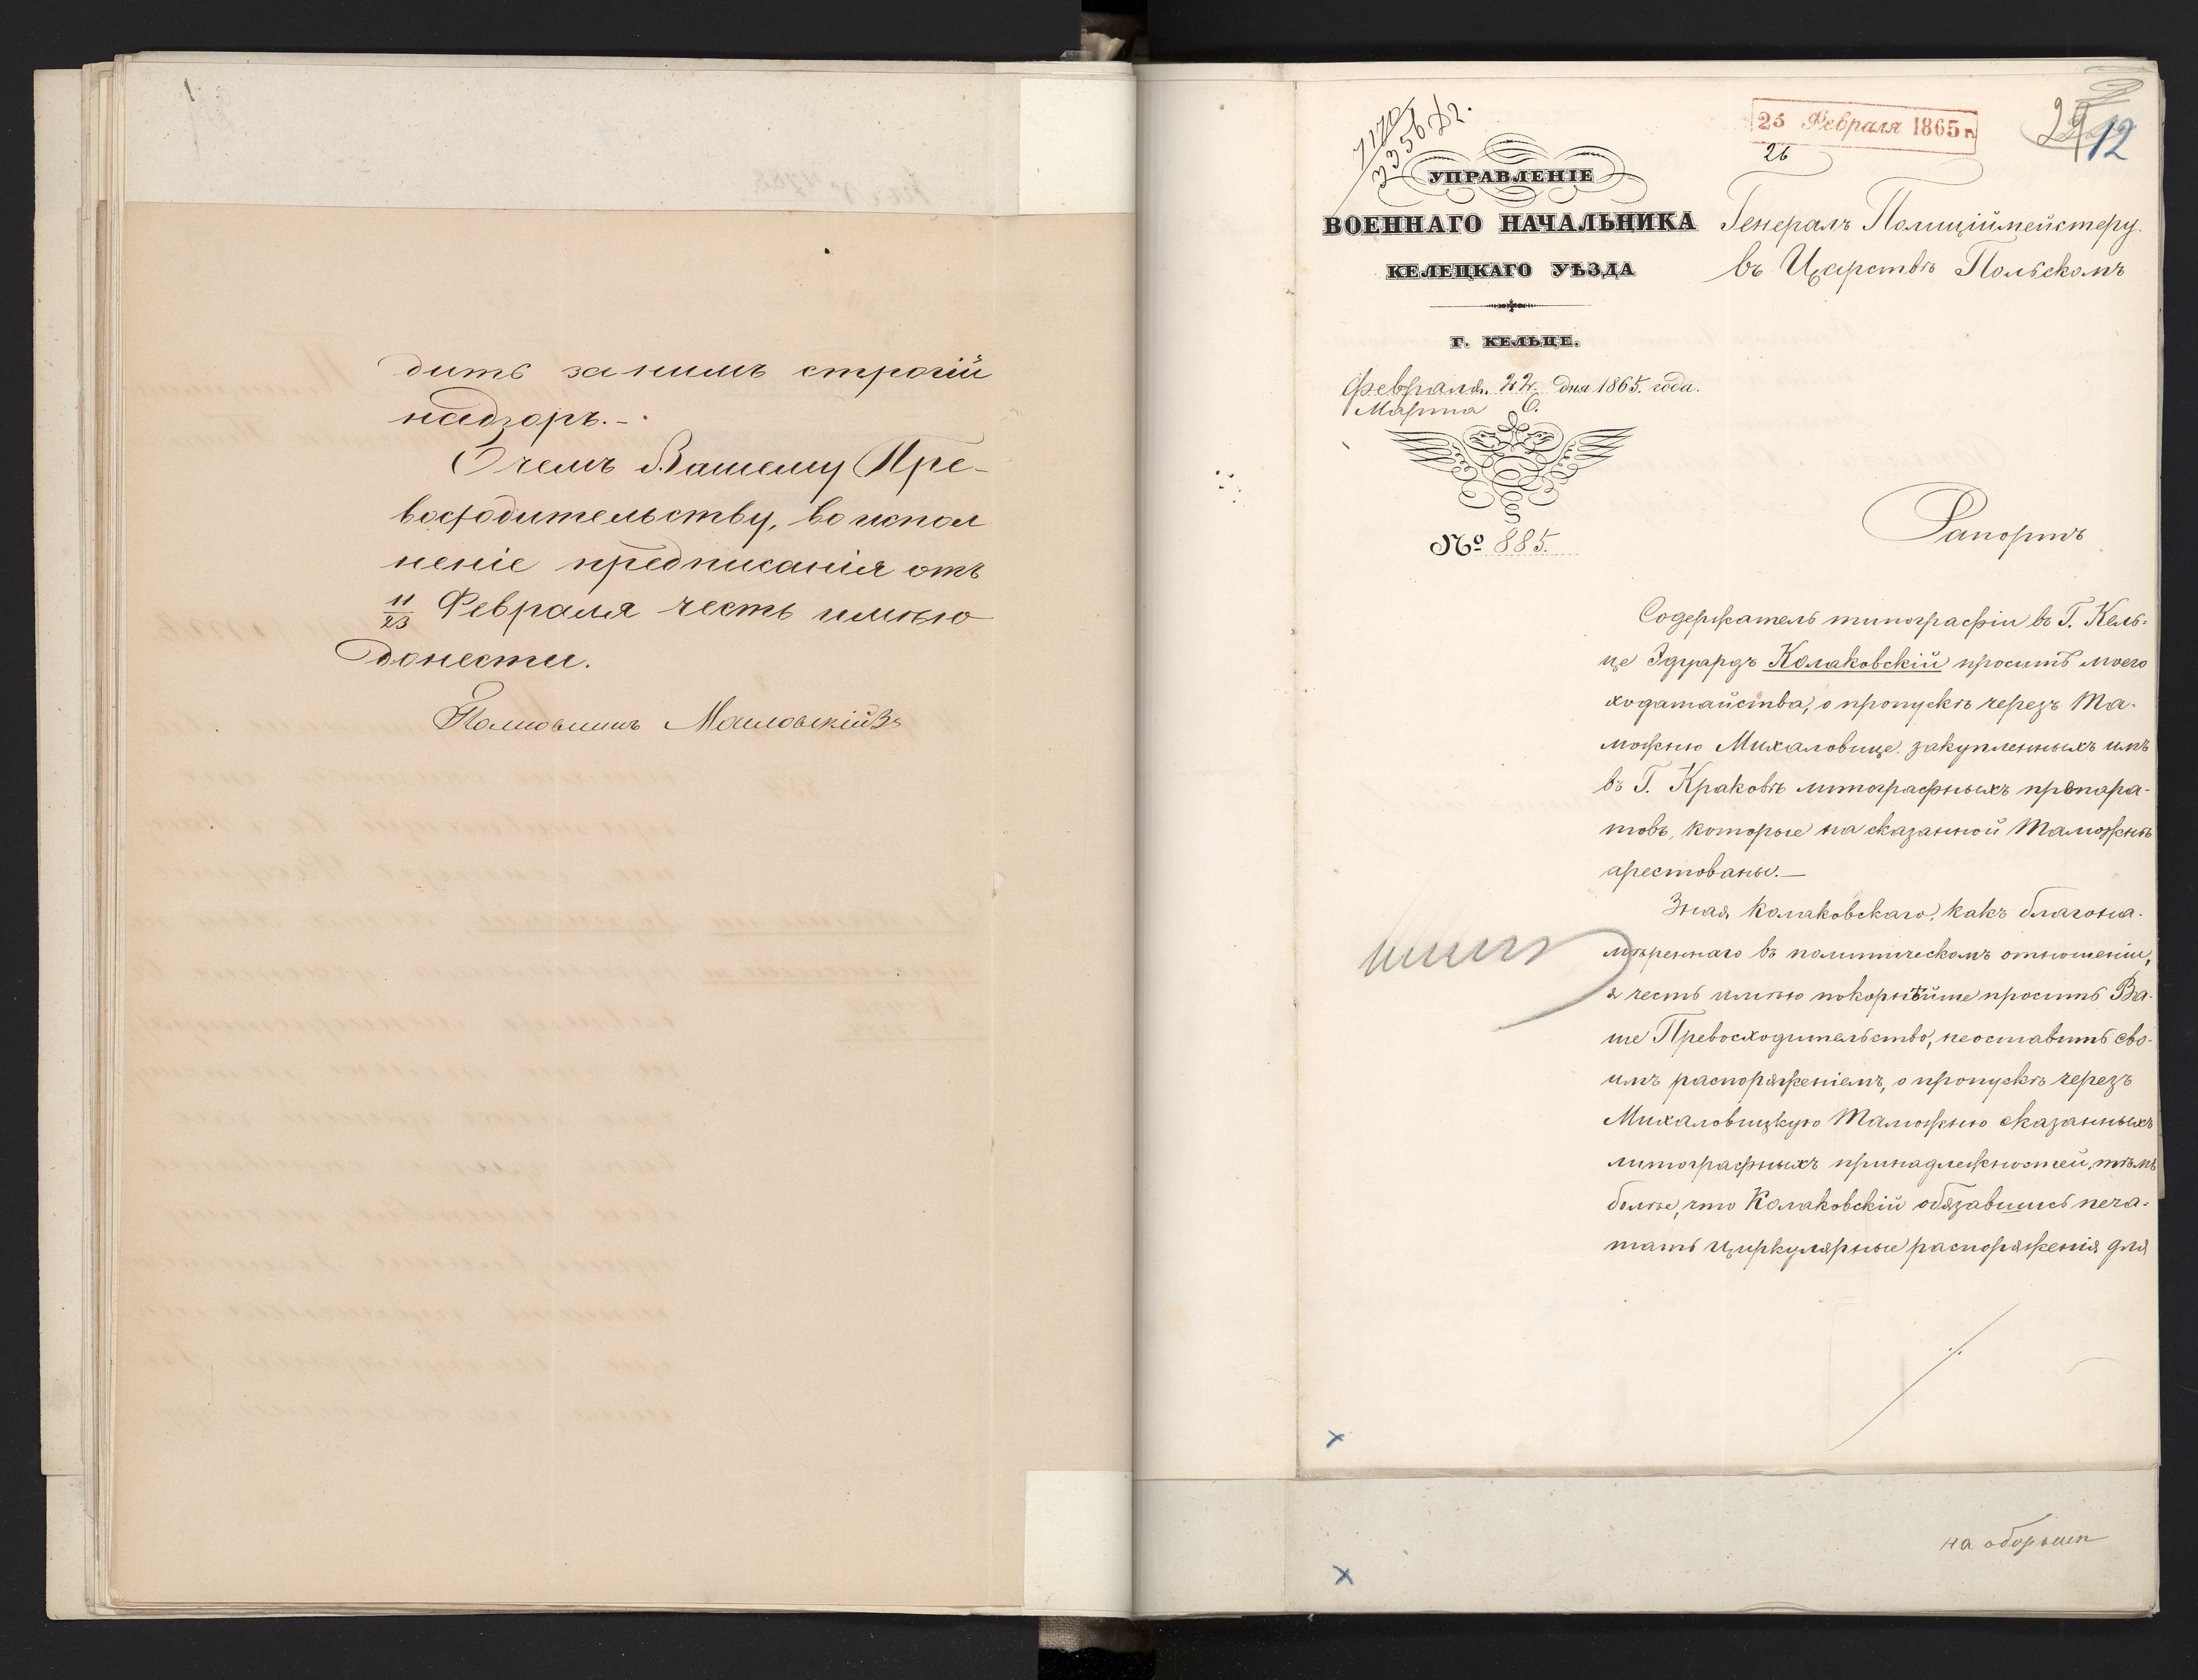 дить за нимъ строгій
надзоръ.-
О чемъ Вашему Пре-
восходительству, во испол
неніе предписанія отъ
11/23 Февраля честь имѣю
донести.
Полковникъ
25 Февраля 1865 г.
26
29
12
УПРАВЛЕНІЕ
ВОЕННАГО НАЧАЛЬНИКА
КЕЛЕЦКАГО УѢЗДА
Г. КЕЛЬЦЕ.
Февраля 22 дня 1865 года.
Марта 6.
№ 885.
Генералъ Полиціймейстеру
въ Царствѣ Польскомъ
Рапортъ
Содержатель типографіи въ Г. Кель-
це Эдуардъ Колаковскій проситъ моего
ходатайства, о пропускѣ черезъ Та-
можню Михаловице закупленныхъ имъ
въ Г. Краковѣ литографныхъ препара-
товъ, которые на сказанной Таможнѣ
арестованы.—
Зная Колаковскаго, какъ благона-
мѣреннаго въ политическомъ отношеніи,
я честь имѣю покорнѣйше просить Ва-
ше Превосходительство, неоставить сво-
имъ распоряженіемъ, о пропускѣ черезъ
Михаловицкую Таможню сказанныхъ
литографныхъ принадлежностей, тѣмъ
болѣе, что Колаковскій обязавшись печа-
тать циркулярные распоряженія для
на оборотѣ